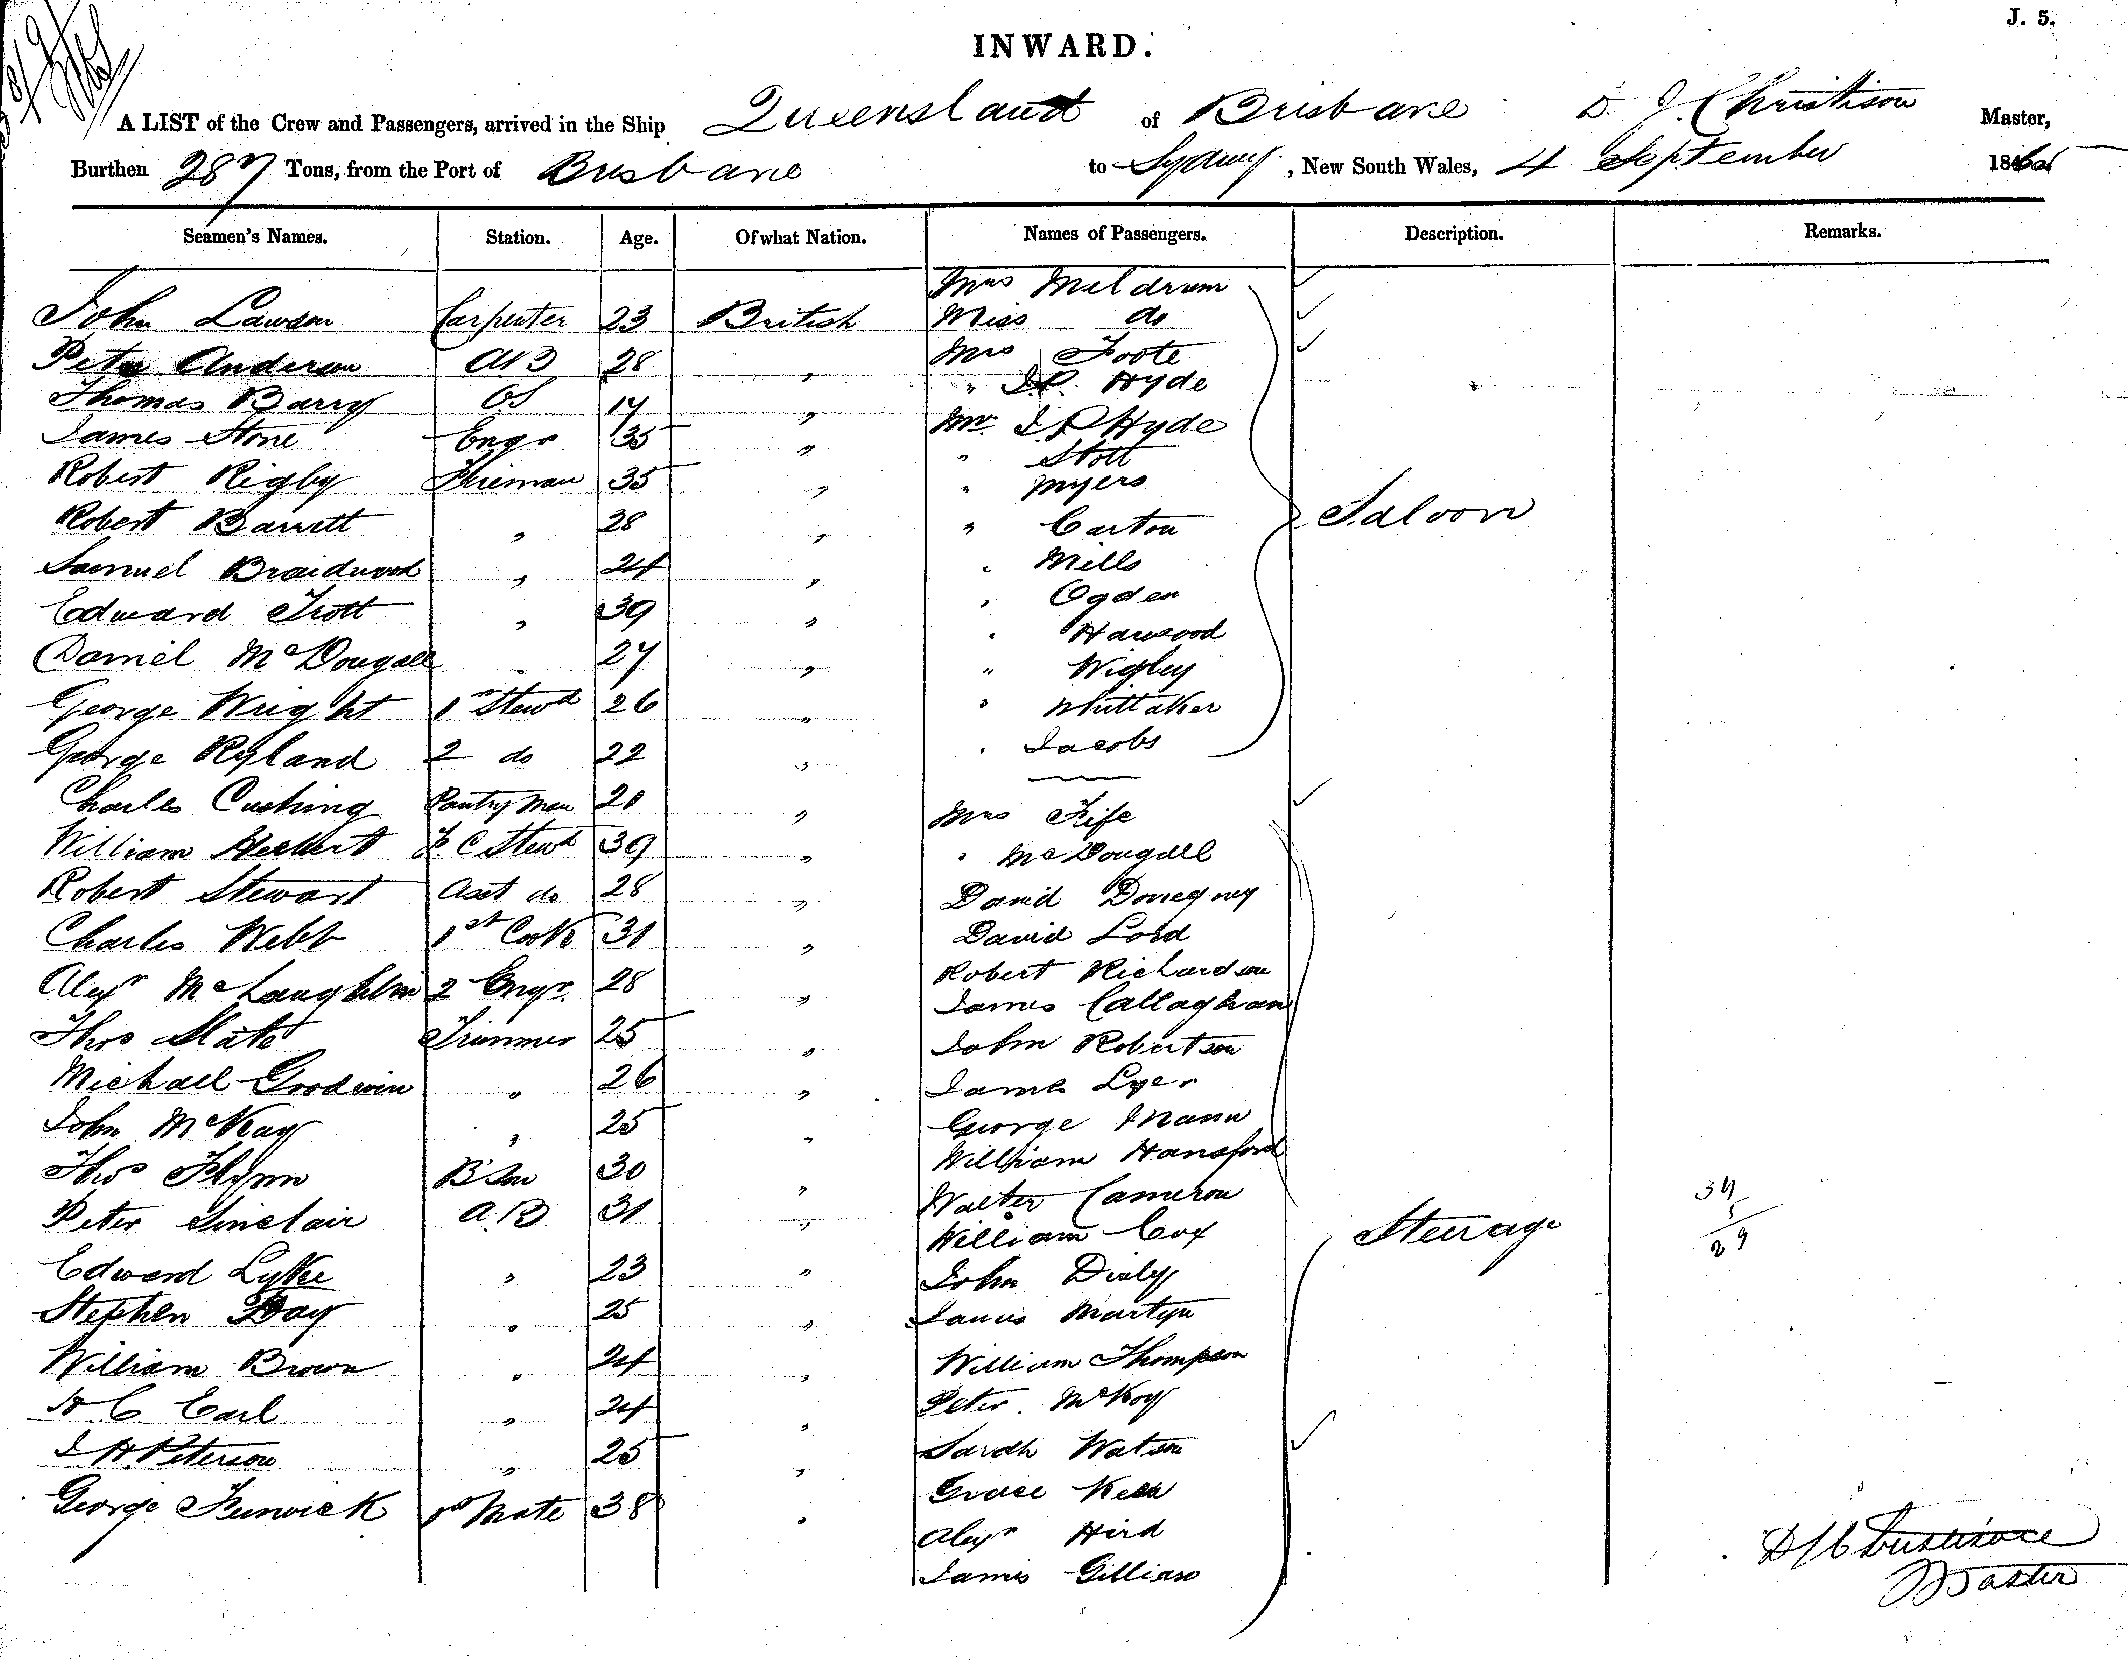 J. 5.
INWARD.
A LIST of the Crew and Passengers, arrived in the Ship Queensland of Brisbane D. J. Christison Master,
Burthen 287 Tons, from the Port of Brisbane to Sydney, New South Wales, 4 September 1865
Seamen's Names. Station. Age. Of what Nation. Names of Passengers. Description. Remarks.
Mrs Meldrum
John Lawson Carpenter 23 British Miss do
Peter Anderson AB 28 " Mrs Foote
" J.P. Hyde
Thomas Barry OS 17 " Mr J P Hyde
James Stone Engr 35 " " Stott
Robert Rigby Fireman 35 " " Myers
Saloon
Robert Barrett " 28 " " Carton
Samuel Braidwood " 24 " " Mills
Edward Trott " 39 " " Ogden
" Harwood
Daniel McDougall " 27 " " Wigley
George Wright 1st Stewd 26 " " Whittaker
George Ryland 2 do 22 " " Jacobs
Charles Cushing Pantry Man 21 " Mrs Fife
William Herbert F C Stewd 39 " " McDougall
Robert Stewart Asst do 28 " David Donegney
Charles Webb 1st Cook 31 " David Lord
Robert Richardson
Alexr McLaughlin 2 Engr 28 " James Callaghan
Thos Slate Trimmer 25 " John Robertson
Michael Goodwin " 26 " James Lyer
John McKay " 25 " George Mann
William Hansford
Thos Flynn BSm 30 " Walter Cameron
34
5
29
Peter Sinclair A.B 31 " William Cox
Steerage
Edward Lyke " 23 " John Dialy
Stephen Day " 25 " James Martyn
William Brown " 24 " William Thompson
H C Earl " 24 " Peter McKoy
J H Peterson " 25 " Sarah Watson
Grace Keen
George Fenwick 1st Mate 38 " Alexr Hird
James Gillian
D J Christison
Master